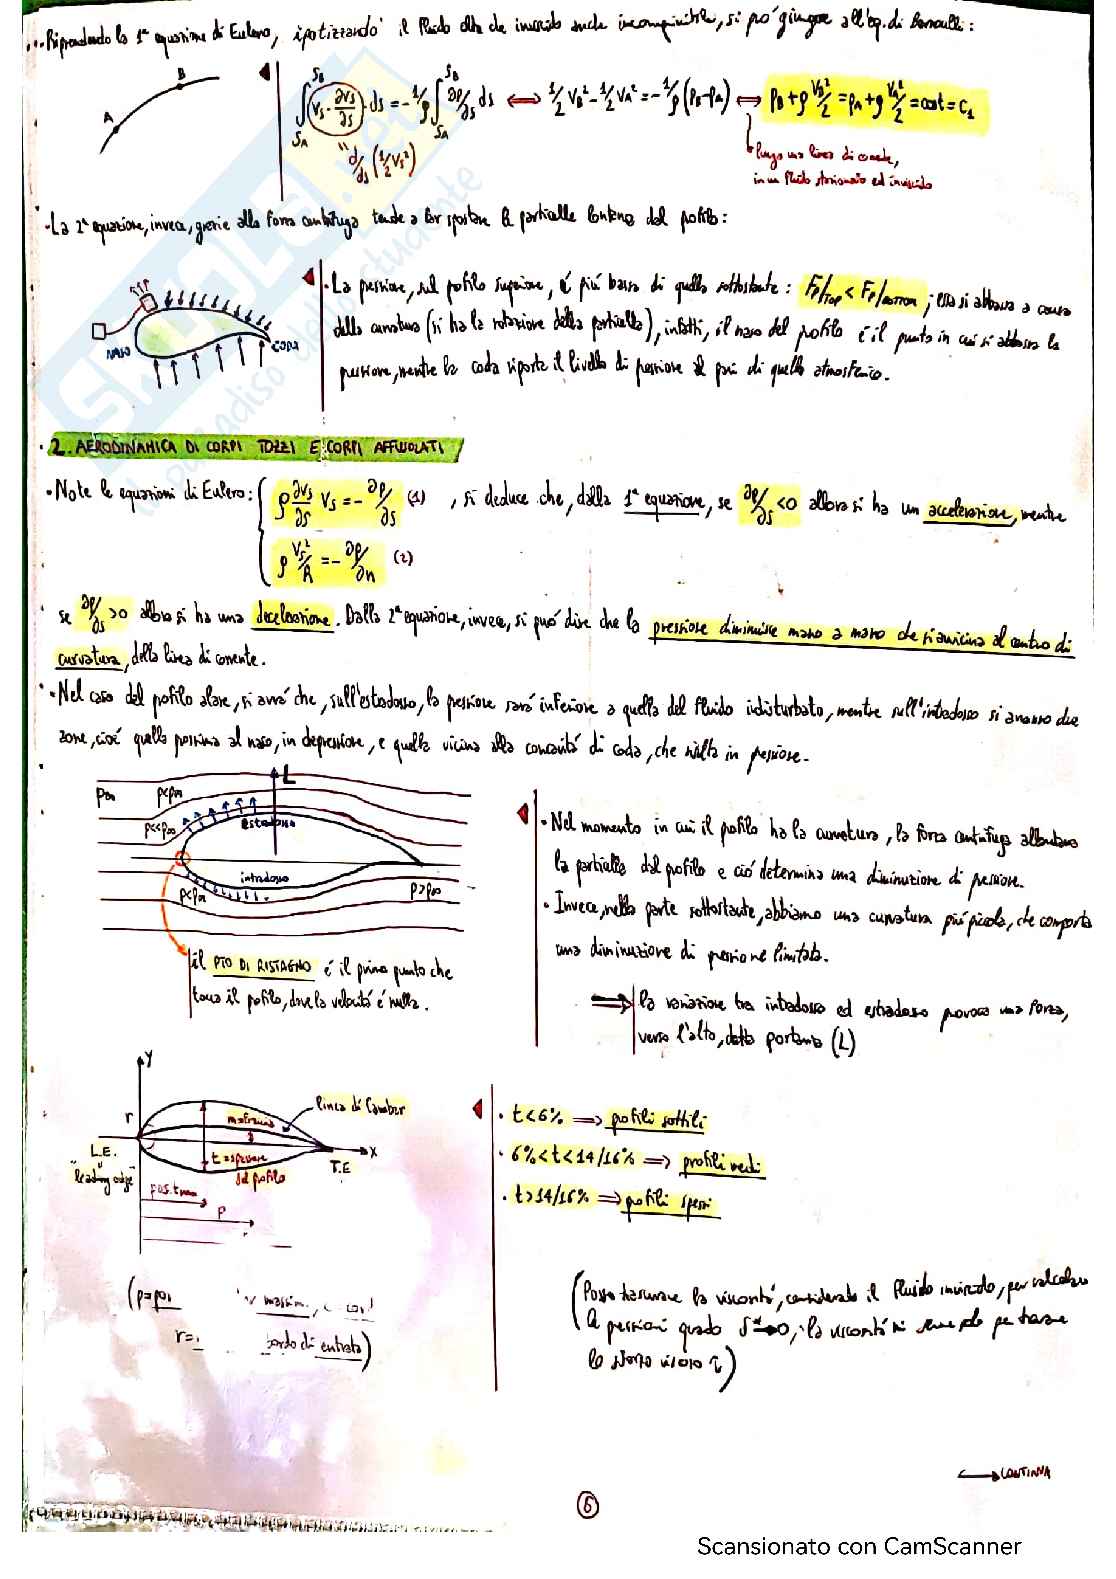 ...Riprendendo la 1ª equazione di Eulero, ipotizzando il fluido oltre che inviscido anche incomprimibile, si può giungere all'eq. di Bernoulli:
A B
∫_{S_A}^{S_B} V_s · ∂V_s/∂s · ds = -1/ρ ∫_{S_A}^{S_B} ∂p/∂s ds ⟺ 1/2 V_B² - 1/2 V_A² = -1/ρ (p_B - p_A) ⟺ p_B + ρ V_B²/2 = p_A + ρ V_A²/2 = cost = C_1
d/ds (1/2 V_s²)
lungo una linea di corrente,
in un fluido stazionario ed inviscido
·La 2ª equazione, invece, grazie alla forza centrifuga tende a far spostare le particelle lontano dal profilo:
NASO CODA
·La pressione, sul profilo superiore, è più bassa di quella sottostante: Fp/TOP < Fp/BOTTOM; essa si abbassa a causa
della curvatura (si ha la rotazione della particella), infatti, il naso del profilo è il punto in cui si abbassa la
pressione, mentre la coda riporta il livello di pressione al pari di quello atmosferico.
· 2. AERODINAMICA DI CORPI TOZZI E CORPI AFFUSOLATI
·Note le equazioni di Eulero: { ρ ∂V_s/∂s V_s = - ∂p/∂s (1) , si deduce che, dalla 1ª equazione, se ∂p/∂s <0 allora si ha un accelerazione, mentre
ρ V_s²/R = - ∂p/∂n (2)
se ∂p/∂s >0 allora si ha una decelerazione. Dalla 2ª equazione, invece, si può dire che la pressione diminuisce mano a mano che si avvicina al centro di
curvatura, della linea di corrente.
·Nel caso del profilo alare, si avrà che, sull'estradosso, la pressione sarà inferiore a quella del fluido indisturbato, mentre sull'intradosso si avranno due
zone, cioè quella prossima al naso, in depressione, e quella vicina alla concavità di coda, che risulta in pressione.
L
p∞ p<p∞
p<<p∞ estradosso
intradosso
p<p∞ p>p∞
il PTO DI RISTAGNO è il primo punto che
tocca il profilo, dove la velocità è nulla.
·Nel momento in cui il profilo ha la curvatura, la forza centrifuga allontana
la particella dal profilo e ciò determina una diminuzione di pressione.
·Invece, nella parte sottostante, abbiamo una curvatura più piccola, che comporta
una diminuzione di pressione limitata.
⟹ la variazione tra intradosso ed estradosso provoca una forza,
verso l'alto, detta portanza (L)
y
r linea di Camber
L.E. t = spessore x
"leading edge" del profilo T.E
pos. t max
p
· t<6% ⟹ profili sottili
· 6%<t<14/16% ⟹ profili medi
· t>14/16% ⟹ profili spessi
(p=pos
r= bordo di entrata)
(Posso trascurare la viscosità, considerando il fluido inviscido, per calcolare
le pressioni quando δ*→0, la viscosità mi serve solo per trovare
lo sforzo viscoso τ)
→CONTINUA
6
Scansionato con CamScanner